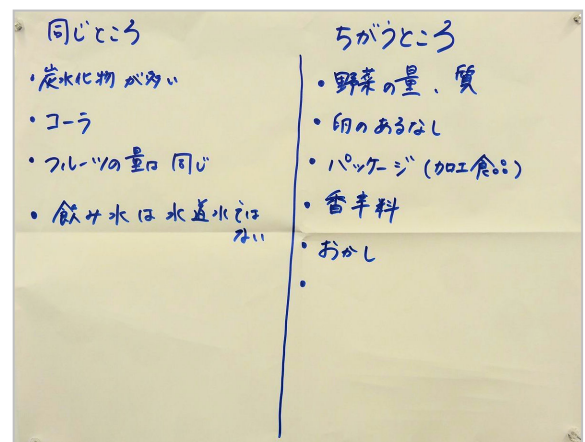 同じところ
・炭水化物が多い
・コーラ
・フルーツの量は同じ
・飲み水は水道水では
ない
ちがうところ
・野菜の量、質
・卵のあるなし
・パッケージ(加工食品)
・香辛料
・おかし
・